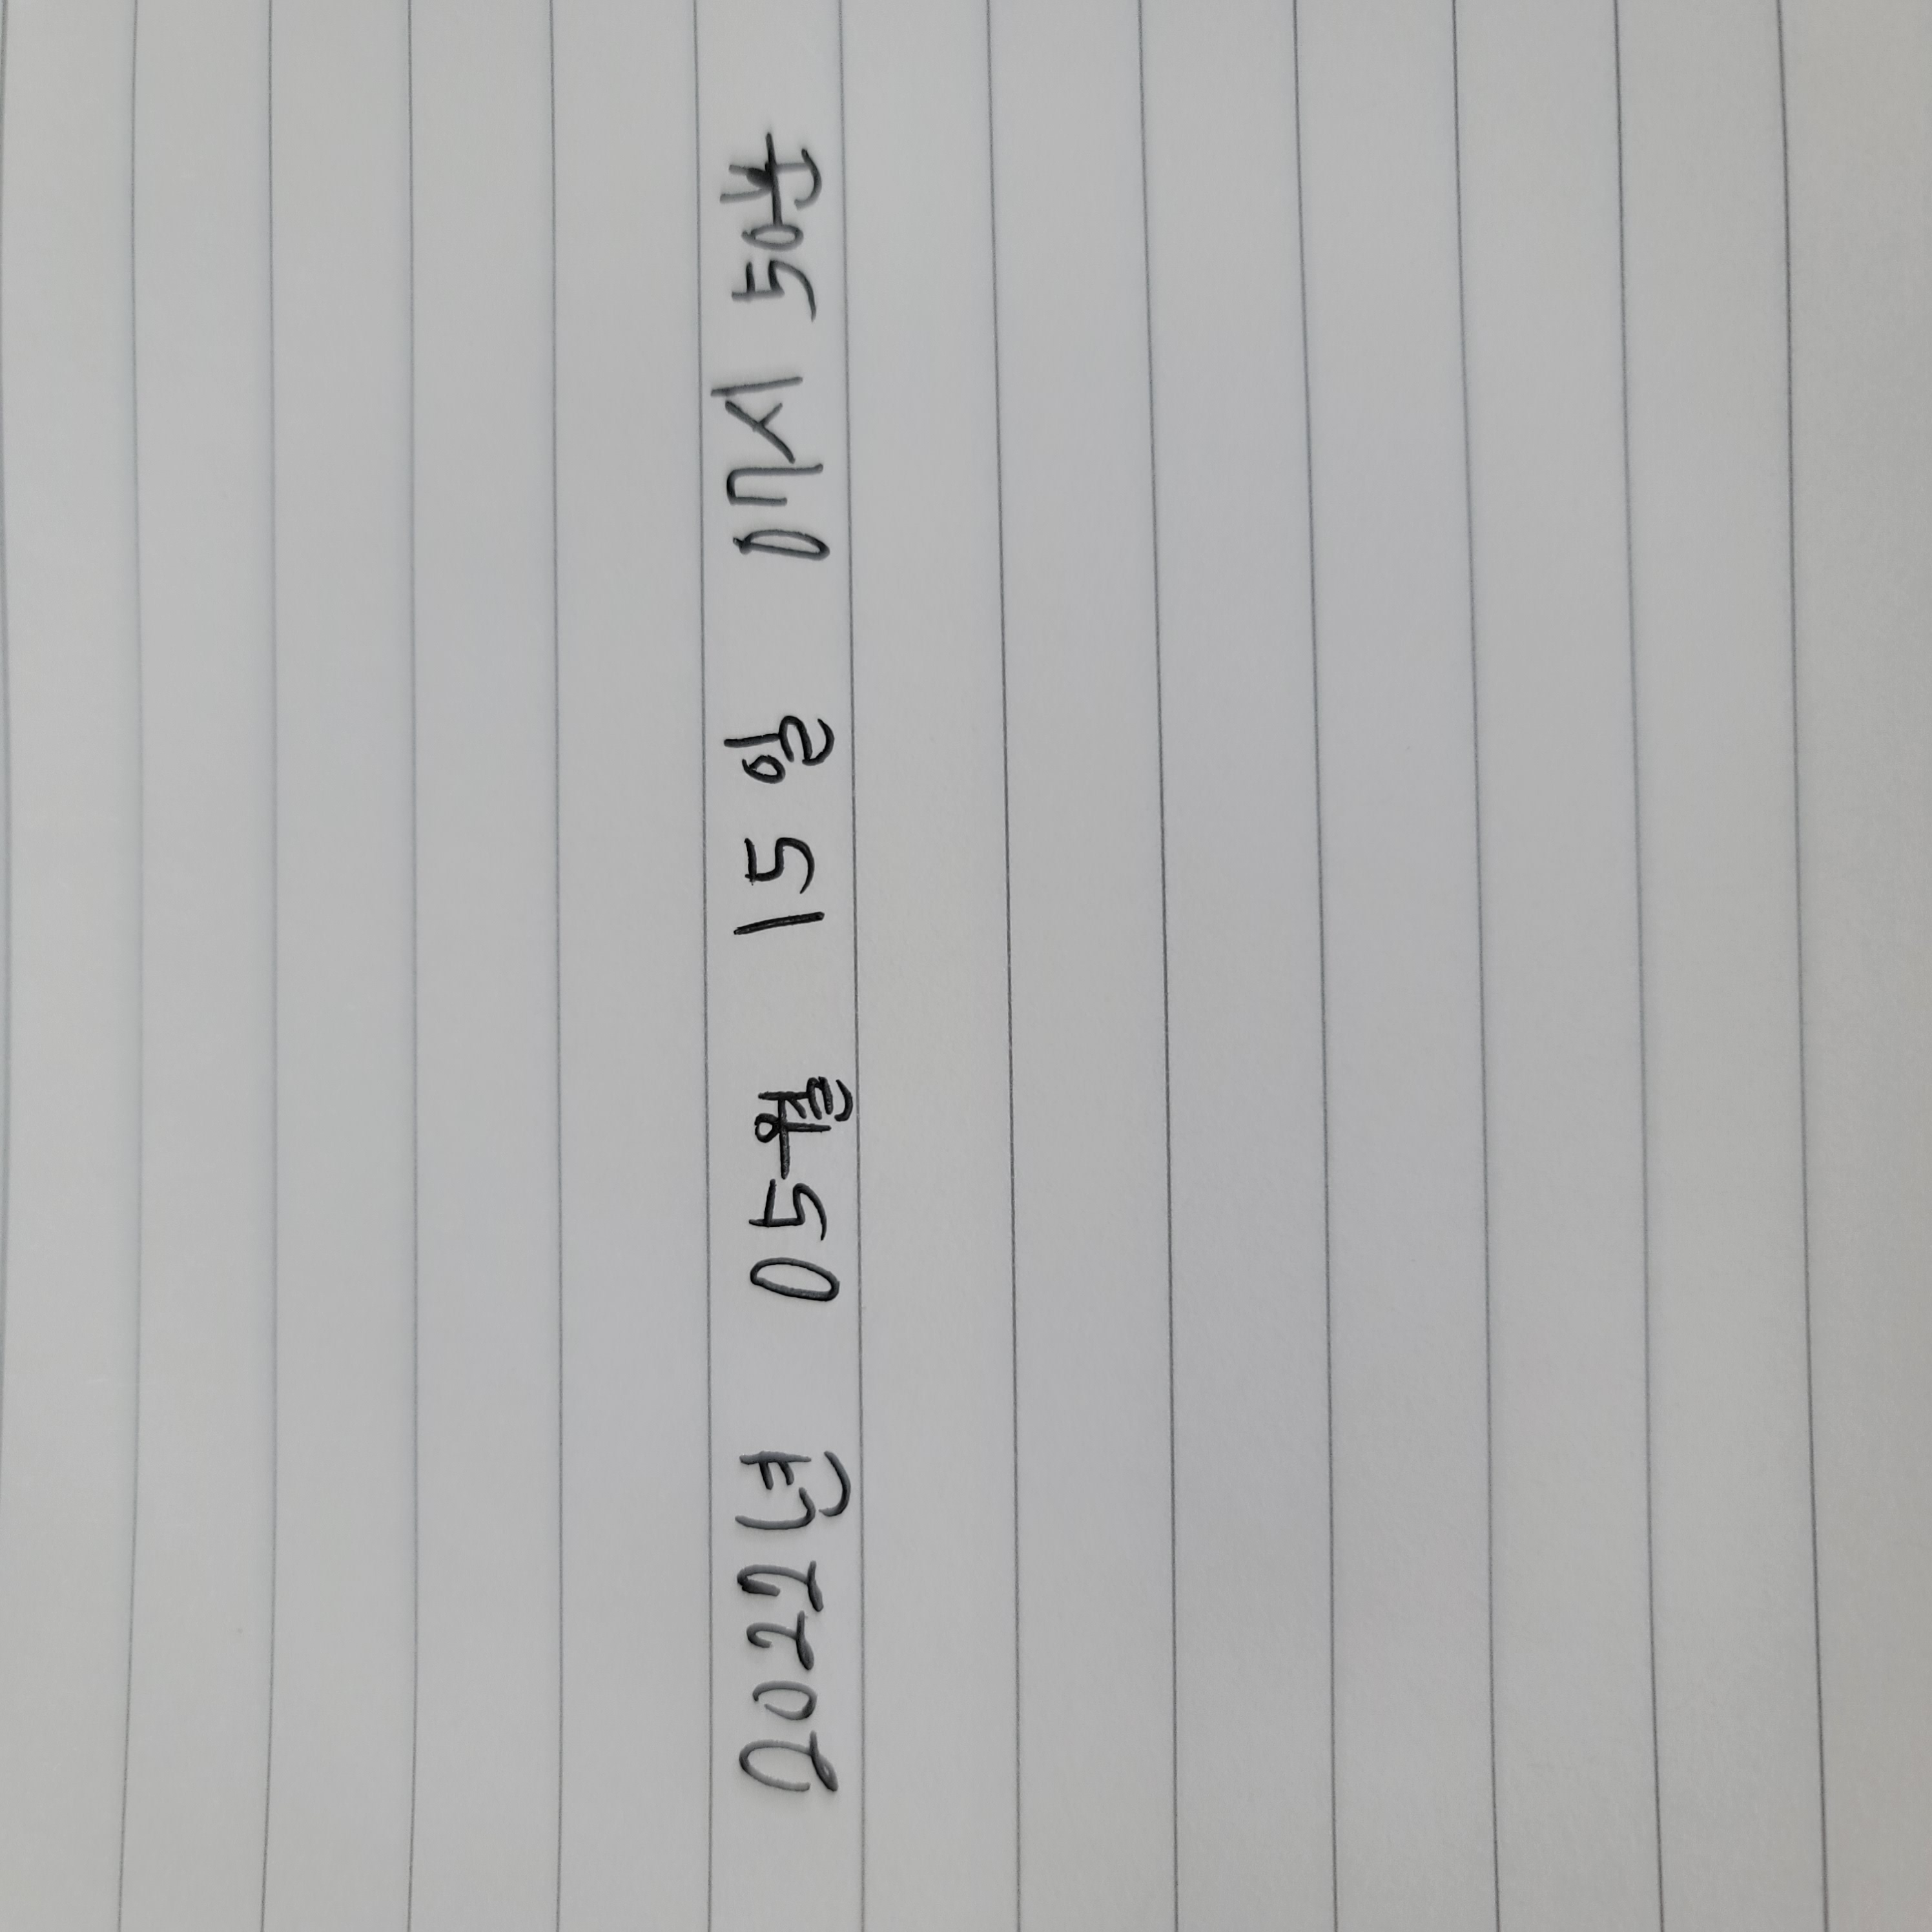 2022년 05월 15일 07시 50분